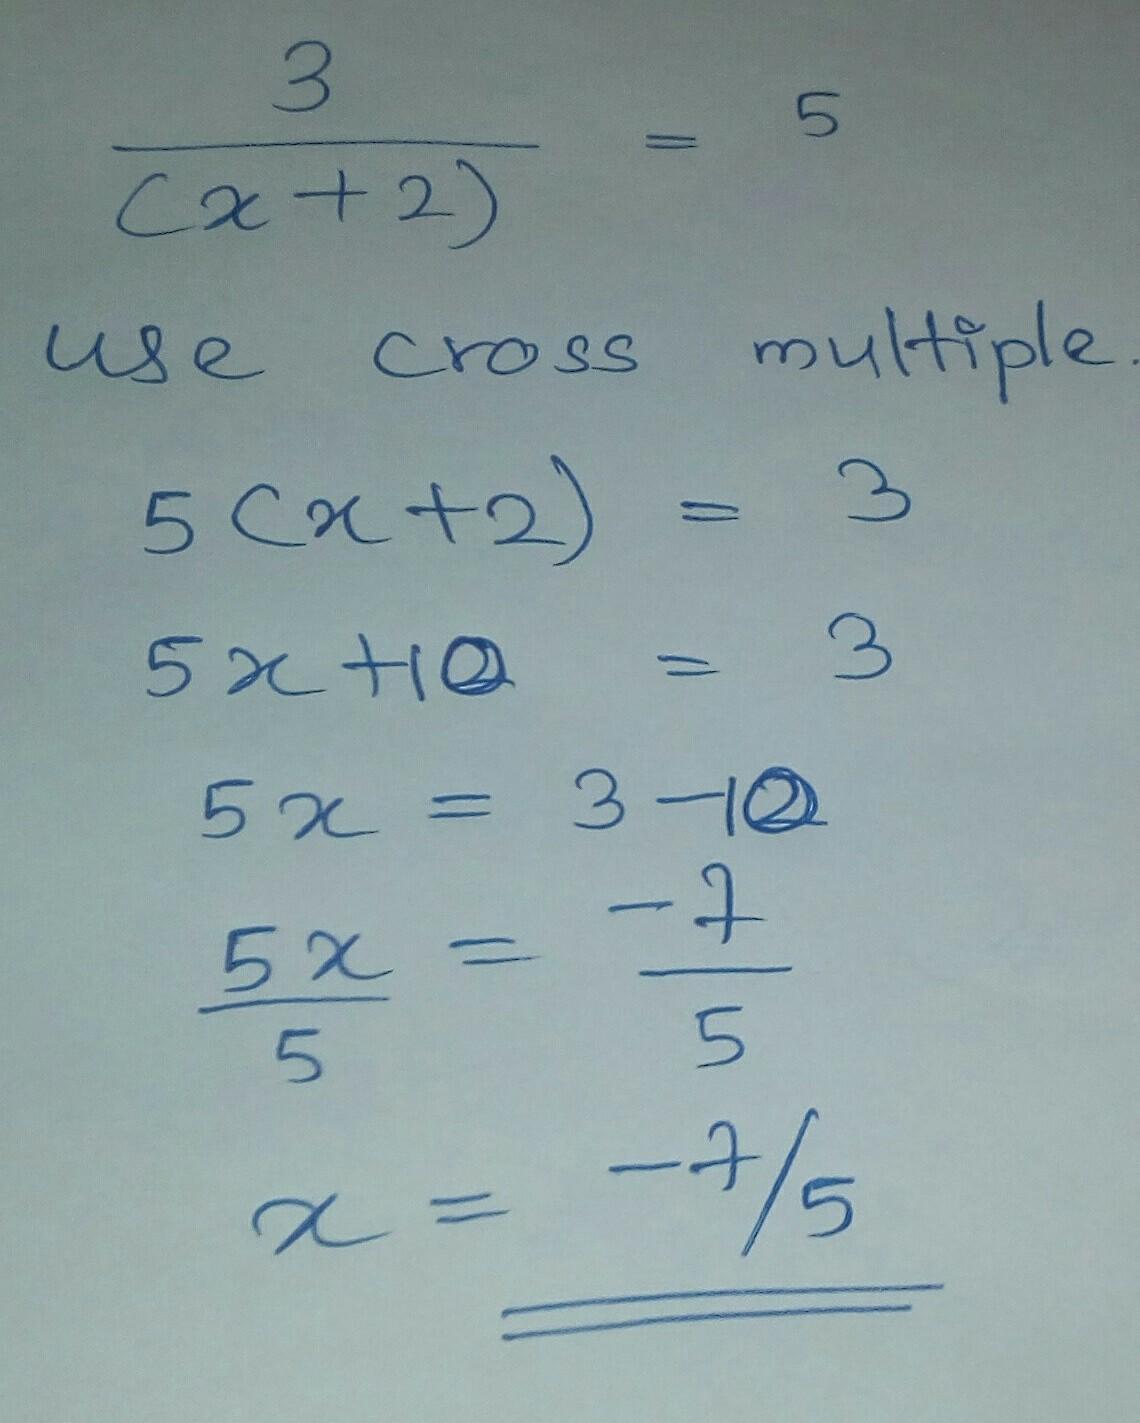 3
———
(x+2) = 5
use cross multiple.
5(x+2) = 3
5x+10 = 3
5x = 3-10
5x/5 = -7/5
x = -7/5